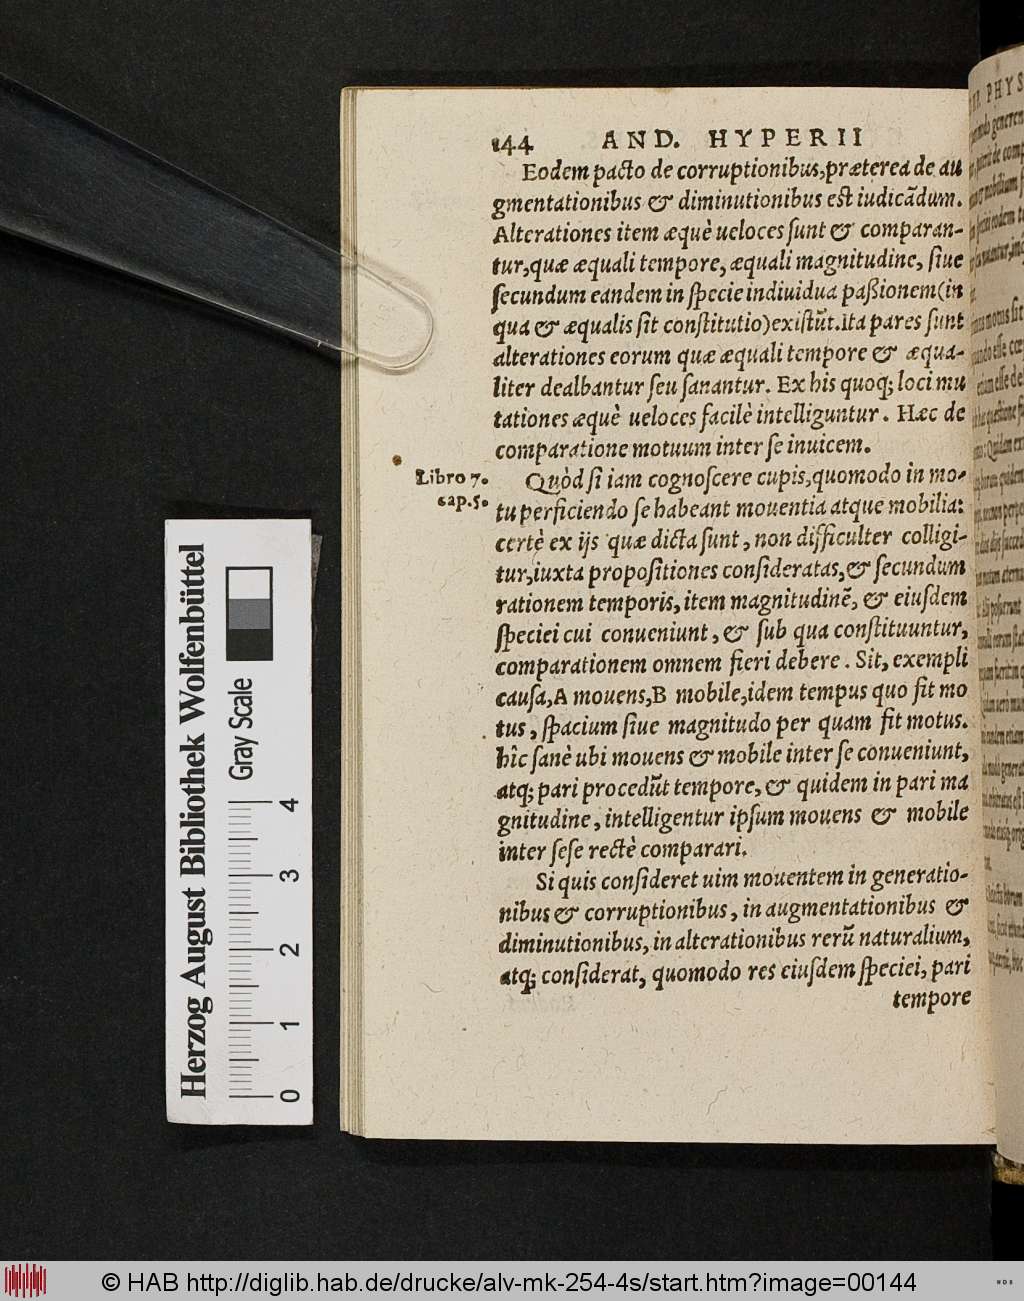 144 AND. HYPERII
Eodem pacto de corruptionibus, præterea de au
gmentationibus & diminutionibus est iudicãdum.
Alterationes item æquè ueloces sunt & comparan-
tur, quæ æquali tempore, æquali magnitudine, siue
secundum eandem in specie indiuidua paßionem (in
qua & æqualis sit constitutio) existũt. Ita pares sunt
alterationes eorum quæ æquali tempore & æqua-
liter dealbantur seu sanantur. Ex his quoq; loci mu
tationes æquè ueloces facilè intelliguntur. Hæc de
comparatione motuum inter se inuicem.
Libro 7.
cap.5.
Quòd si iam cognoscere cupis, quomodo in mo-
tu perficiendo se habeant mouentia atque mobilia:
certè ex ijs quæ dicta sunt, non difficulter colligi-
tur, iuxta propositiones consideratas, & secundum
rationem temporis, item magnitudinẽ, & eiusdem
speciei cui conueniunt, & sub qua constituuntur,
comparationem omnem fieri debere. Sit, exempli
causa, A mouens, B mobile, idem tempus quo fit mo
tus, spacium siue magnitudo per quam fit motus.
hîc sanè ubi mouens & mobile inter se conueniunt,
atq; pari procedũt tempore, & quidem in pari ma
gnitudine, intelligentur ipsum mouens & mobile
inter sese rectè comparari.
Si quis consideret uim mouentem in generatio-
nibus & corruptionibus, in augmentationibus &
diminutionibus, in alterationibus rerũ naturalium,
atq; considerat, quomodo res eiusdem speciei, pari
tempore
Herzog August Bibliothek Wolfenbüttel
Gray Scale
0 1 2 3 4
© HAB http://diglib.hab.de/drucke/alv-mk-254-4s/start.htm?image=00144